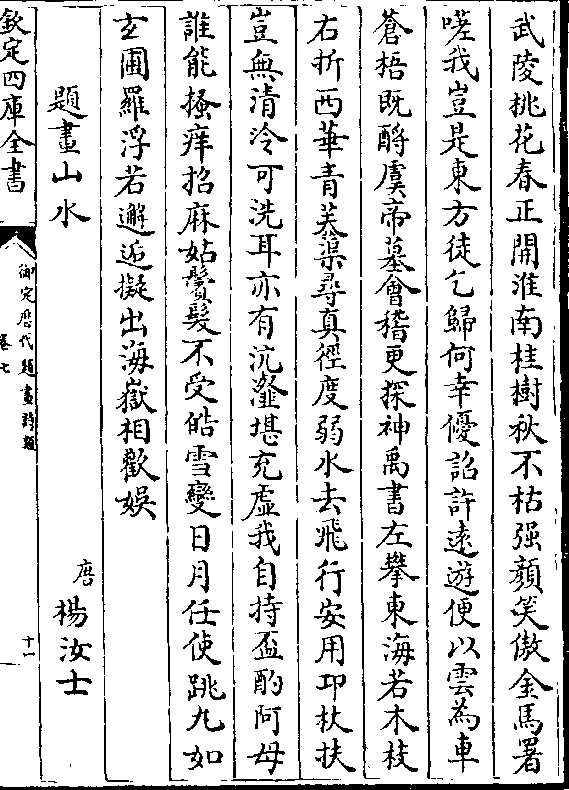 武陵桃花春正開淮南桂樹秋不枯强顔笑傲金馬署
嗟我豈是東方徒乞歸何幸優詔許逺遊便以雲為車
蒼梧既酹虞帝墓會稽更探神禹書左攀東海若木枝
右折西華青芙蕖尋真徑度弱水去飛行安用卭杖扶
豈無清泠可洗耳亦有沆瀣堪充虚我自持盃酌阿母
誰能搔痒招麻姑鬢髮不受皓雪變日月任使跳九如
玄圃羅浮若邂逅擬出海嶽相歡娱
題畫山水
唐
楊汝士
欽定四庫全書
御定歴代題畫詩類
卷七
十一